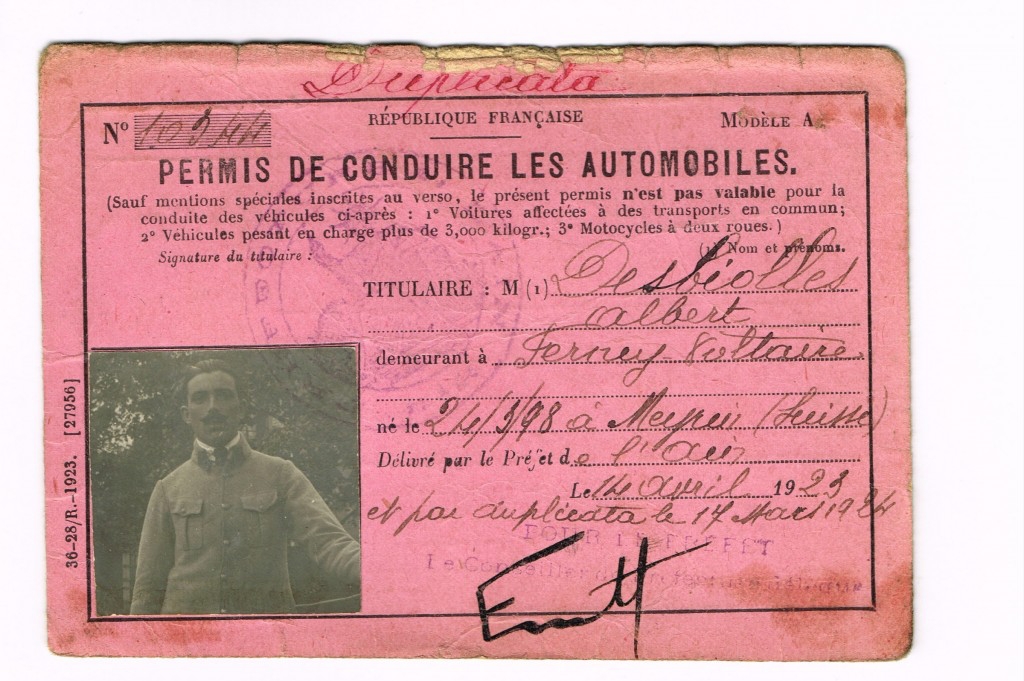 Duplicata
N° 10344
RÉPUBLIQUE FRANÇAISE
MODÈLE A.
PERMIS DE CONDUIRE LES AUTOMOBILES.
(Sauf mentions spéciales inscrites au verso, le présent permis n'est pas valable pour la
conduite des véhicules ci-après : 1° Voitures affectées à des transports en commun;
2° Véhicules pesant en charge plus de 3,000 kilogr.; 3° Motocycles à deux roues.)
(1) Nom et prénoms.
Signature du titulaire :
TITULAIRE : M (1) Desbiolles
Albert
demeurant à Ferney-Voltaire.
né le 24/3/98 à Meyrin (Suisse)
Délivré par le Préfet de l'Ain
Le 14 avril 1923
et par duplicata le 17 Mars 1924
POUR LE PREFET
36-28/R.-1923. [27956]